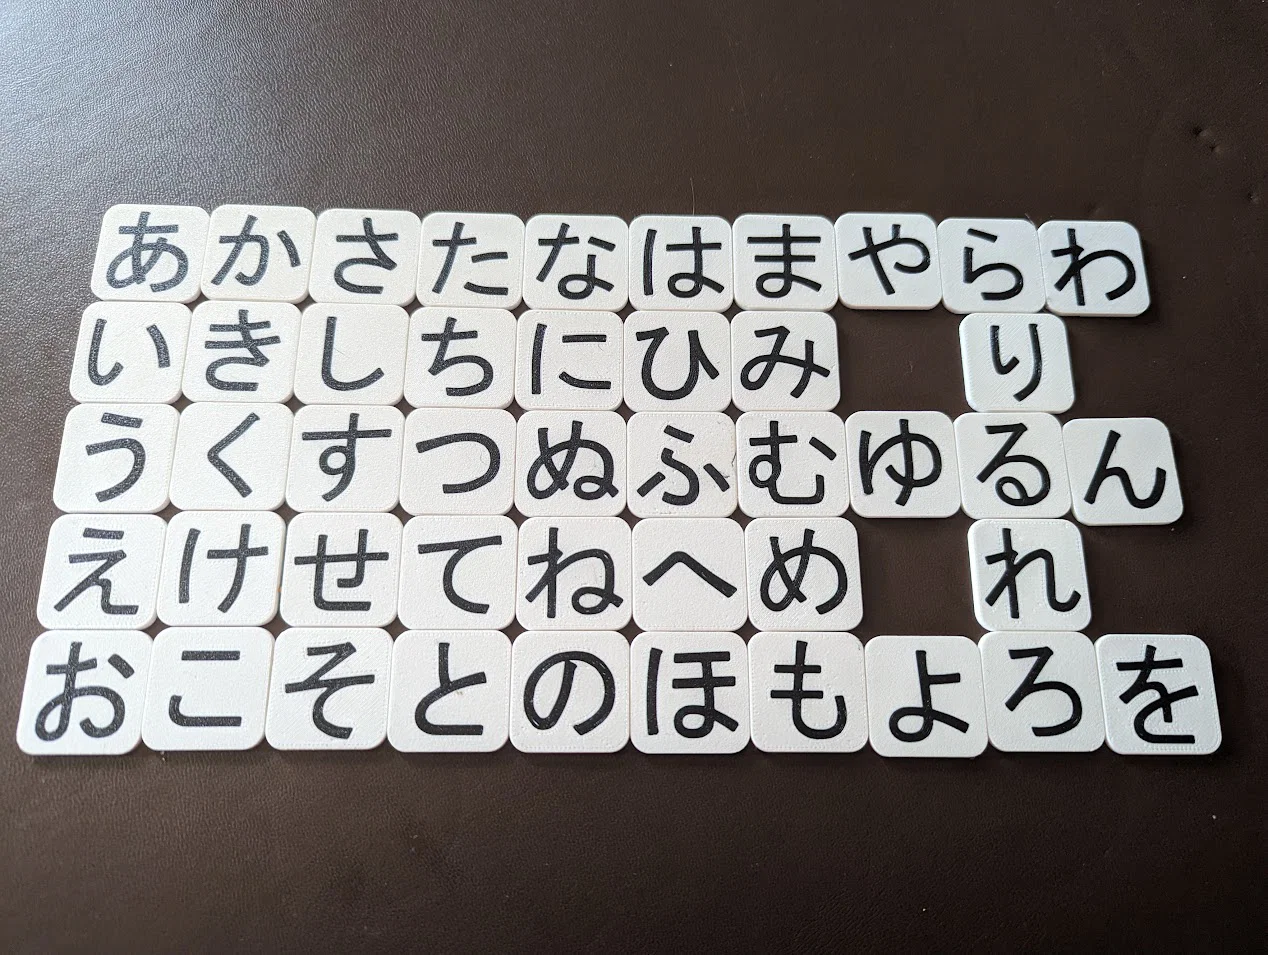 あかさたなはまやらわ
いきしちにひみ り
うくすつぬふむゆるん
えけせてねへめ れ
おこそとのほもよろを